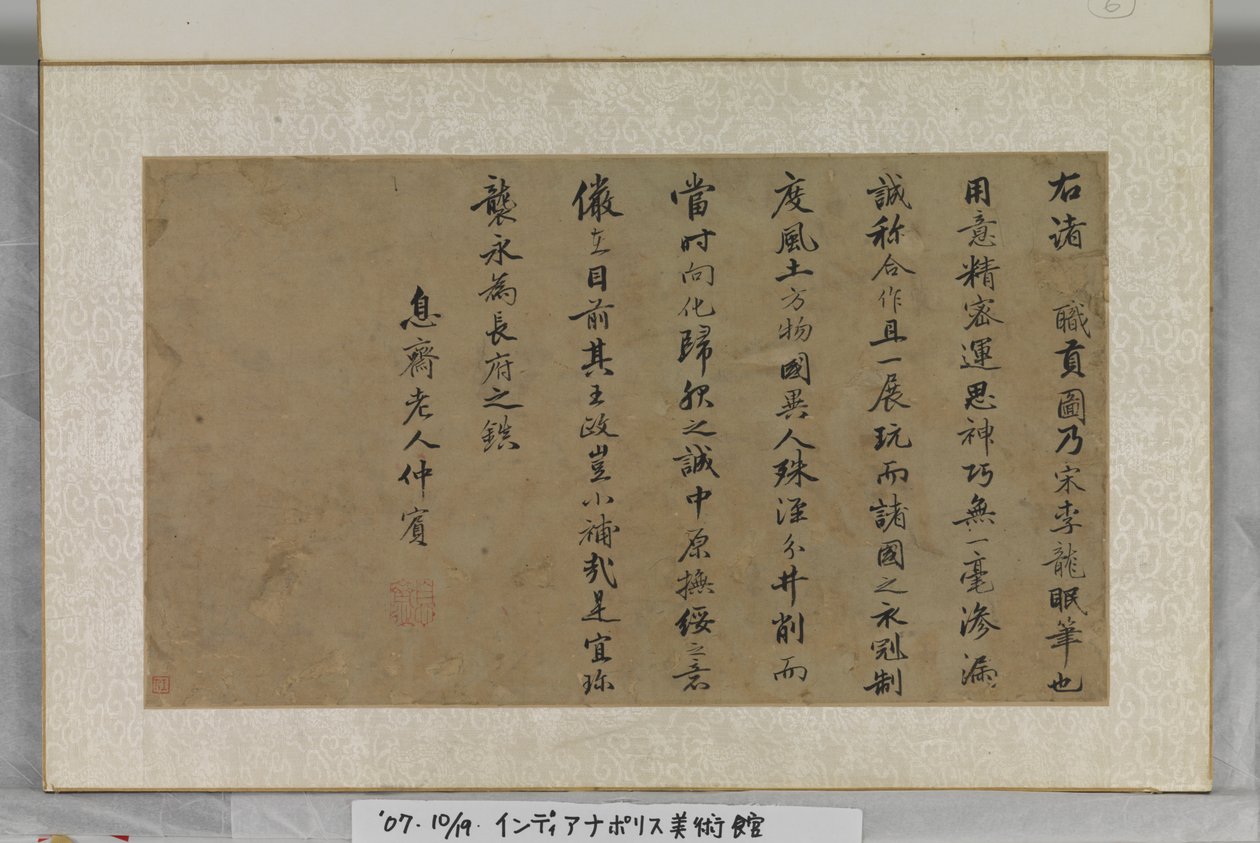 6
右诸 職貢圖乃宋李龍眠筆也
用意精密運思神巧無一毫滲漏
誠称合作且一展玩而諸國之衣冠制
度風土方物國異人殊涇分井削而
當时向化歸服之誠中原撫綏之意
儼在目前其王政豈小補哉是宜珎
襲永為長府之鎮
息齋老人仲賓
息齋
'07. 10/19. インディアナポリス美術館